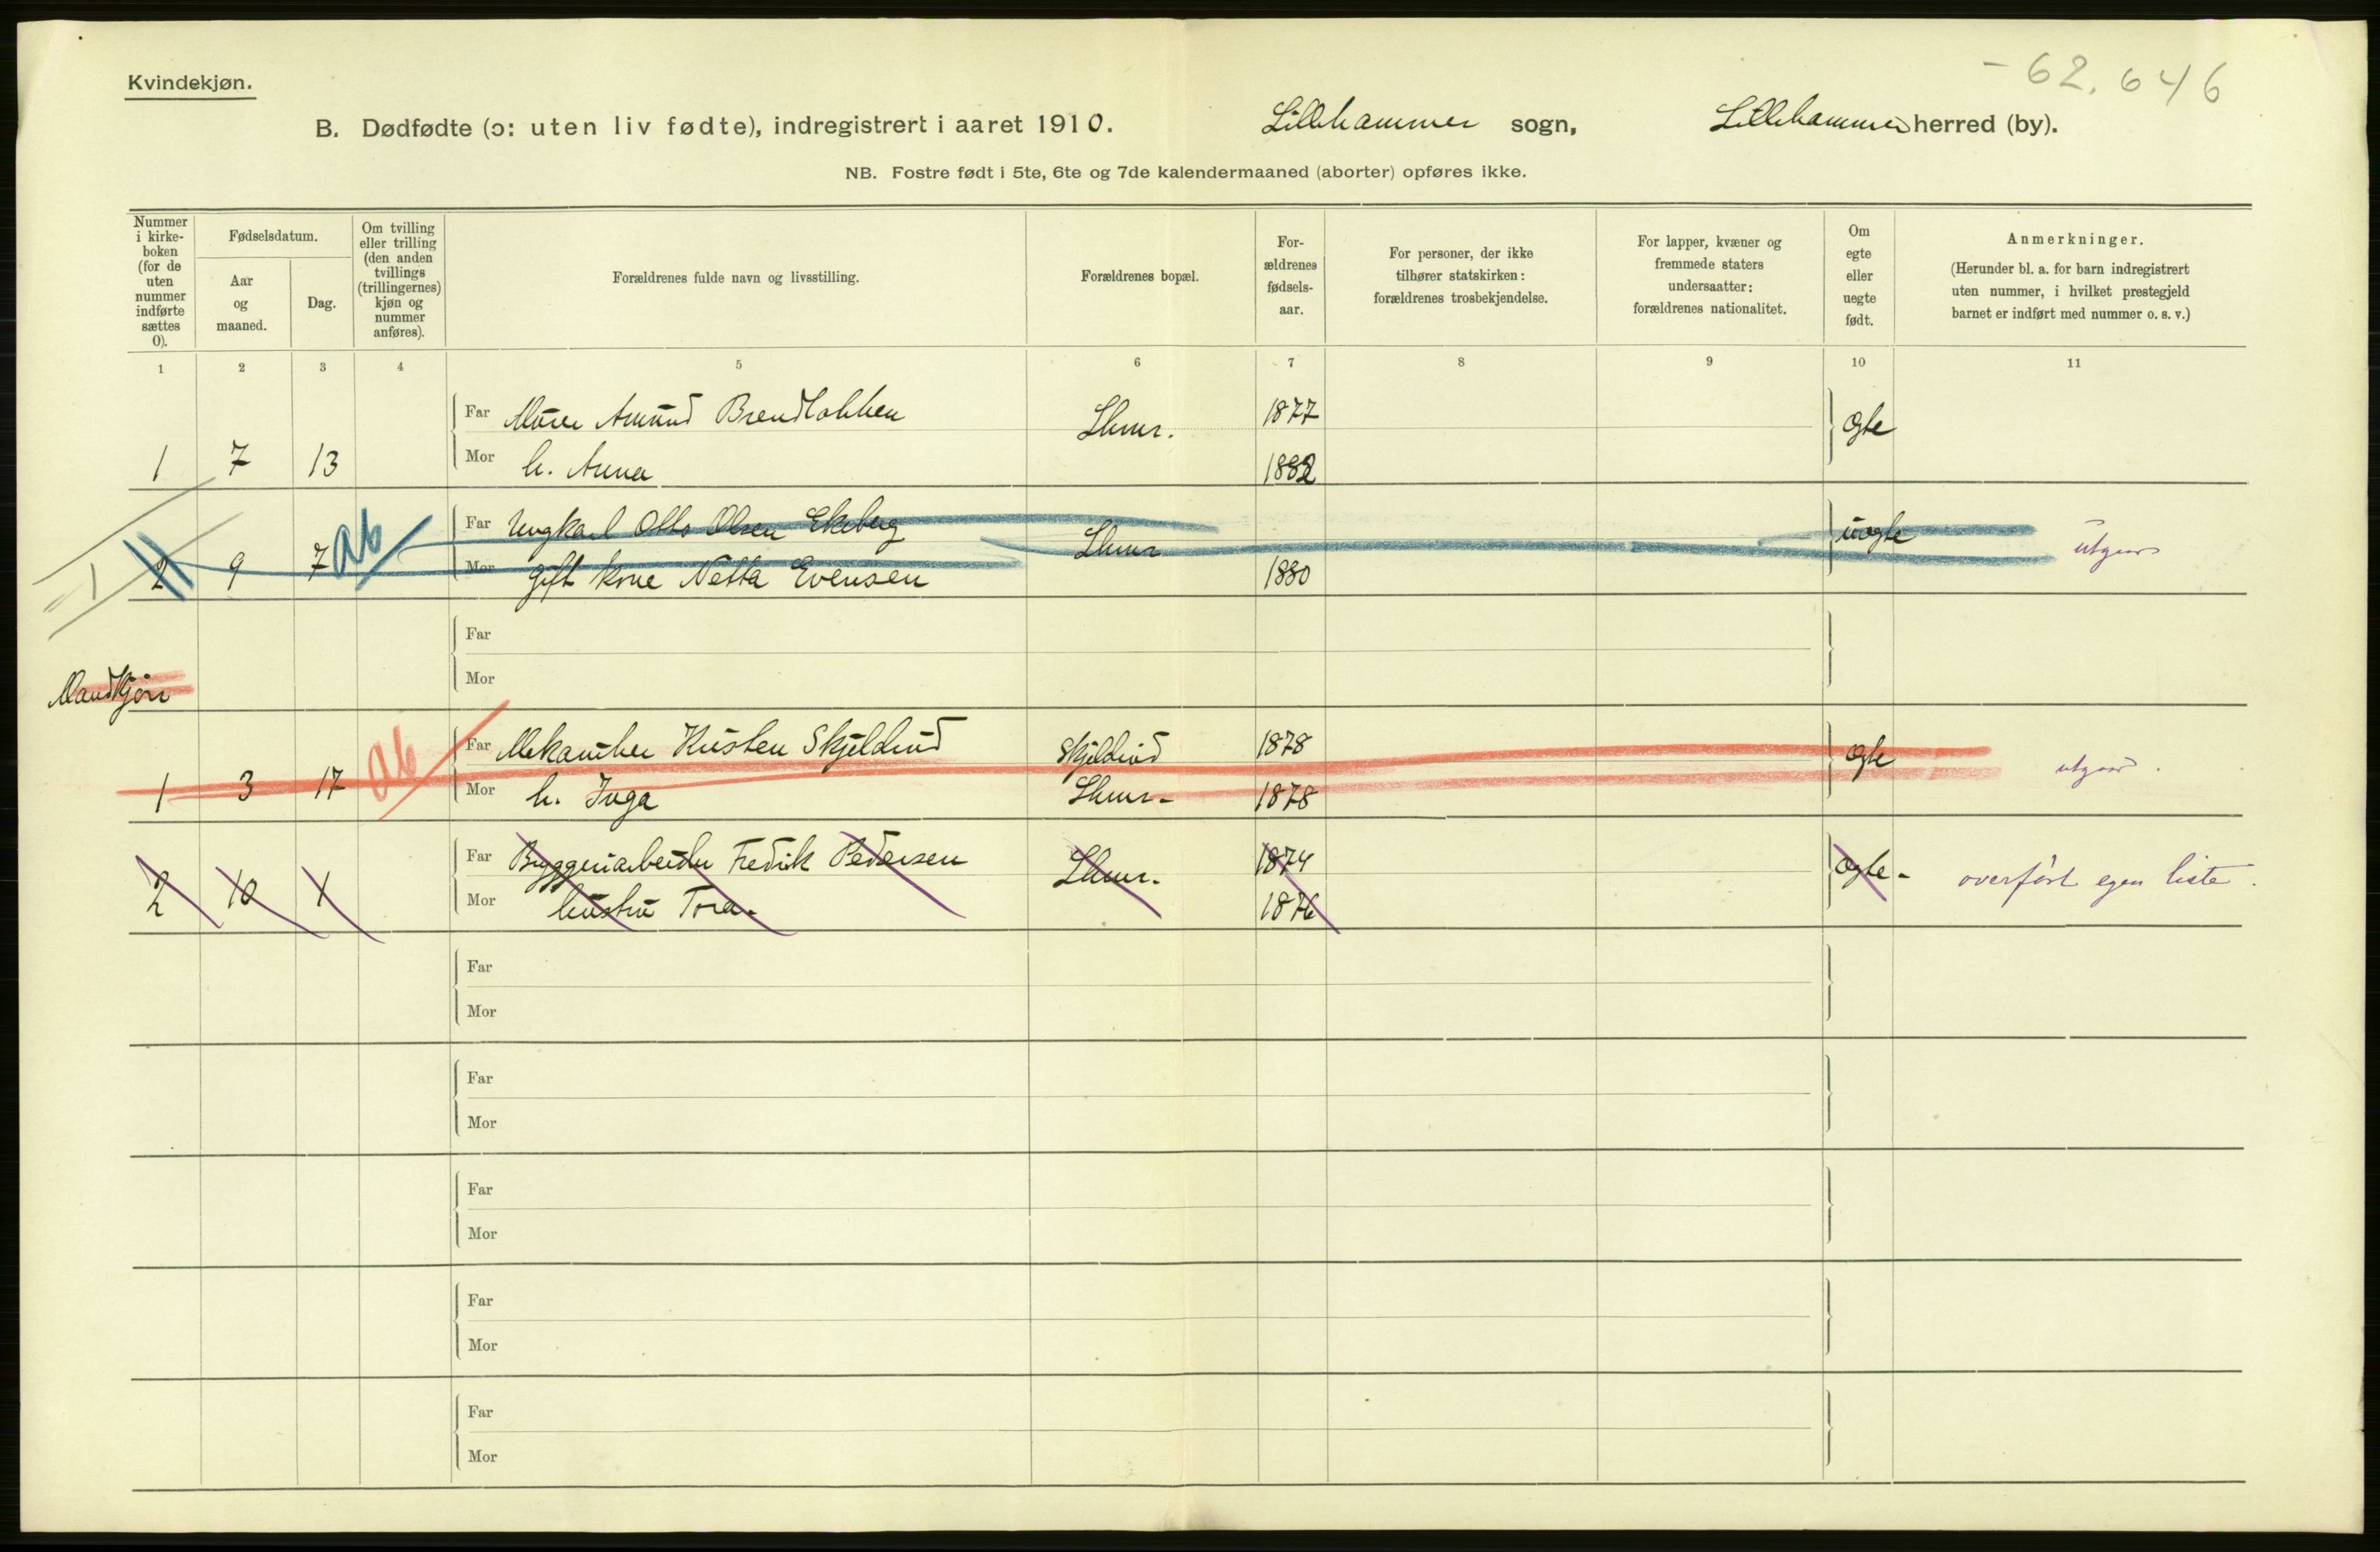 - 62. 646
Kvindekjøn.
B. Dødfødte (ɔ: uten liv fødte), indregistrert i aaret 1910. Lillehammer sogn, Lillehammer herred (by).
NB. Fostre født i 5te, 6te og 7de kalendermaaned (aborter) opføres ikke.
Nummer i kirke-boken (for de uten nummer indførte sættes 0).
Fødselsdatum.
Aar og maaned.
Dag.
Om tvilling eller trilling (den anden tvillings (trillingernes) kjøn og nummer anføres).
Forældrenes fulde navn og livsstilling.
Forældrenes bopæl.
For-ældrenes fødsels-aar.
For personer, der ikke tilhører statskirken: forældrenes trosbekjendelse.
For lapper, kvæner og fremmede staters undersaatter: forældrenes nationalitet.
Om egte eller uegte født.
Anmerkninger.
(Herunder bl. a. for barn indregistrert uten nummer, i hvilket prestegjeld barnet er indført med nummer o. s. v.)
1 2 3 4 5 6 7 8 9 10 11
Far Murer Amund Brendlökken Lhmr. 1877 Egte
1 7 13 Mor h. Anna 1882
Far Ungkarl Otto Olsen Ekeberg Lhmr uegte utgaar
2 9 7 ab Mor gift kone Netta Evensen 1880
Far
Mor
Mandkjøn
Far Mekaniker Kristen Skjeldrud Skjeldrud 1878 Egte utgaar.
1 3 17 ab Mor h. Inga Lhmr. 1878
Far Bryggeriarbeider Fredrik Pedersen Lhmr. 1874 Egte. overført egen liste.
2 10 1 Mor hustru Tora. 1876
Far
Mor
Far
Mor
Far
Mor
Far
Mor
Far
Mor